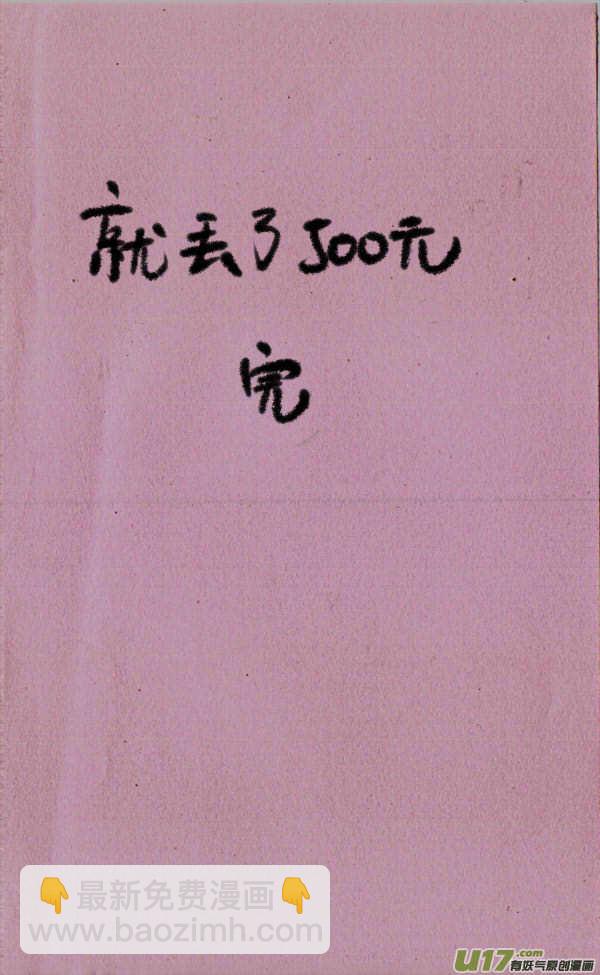 就丢了500元
完
👇最新免费漫画👇
www.baozimh.com
U17.com
有妖气原创漫画